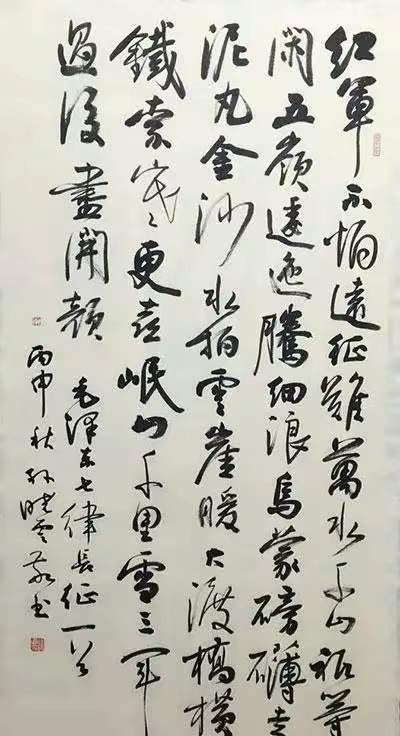 紅軍不怕遠征難萬水千山祇等
閑五嶺逶迤騰細浪烏蒙磅礴走
泥丸金沙水拍雲崖暖大渡橋横
鐵索寒更喜岷山千里雪三軍
過後盡開顔
毛澤東七律長征一首
丙申秋孫曉雲敬書